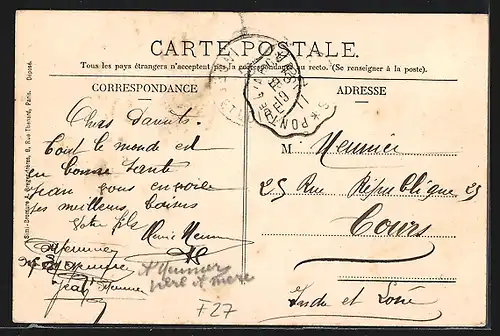 CARTE POSTALE.
Tous les pays étrangers n'acceptent pas la correspondance au recto. (Se renseigner à la poste).
CORRESPONDANCE
ADRESSE
Chers Parents.
Tout le monde est
en bonne santé
Jean vous envoie
ses meilleurs baisers
Votre fils
Meunier
Jean Meunier
A Meunier
père et mère
F27
M Meunier
25 Rue République 25
Tours
Indre et Loire